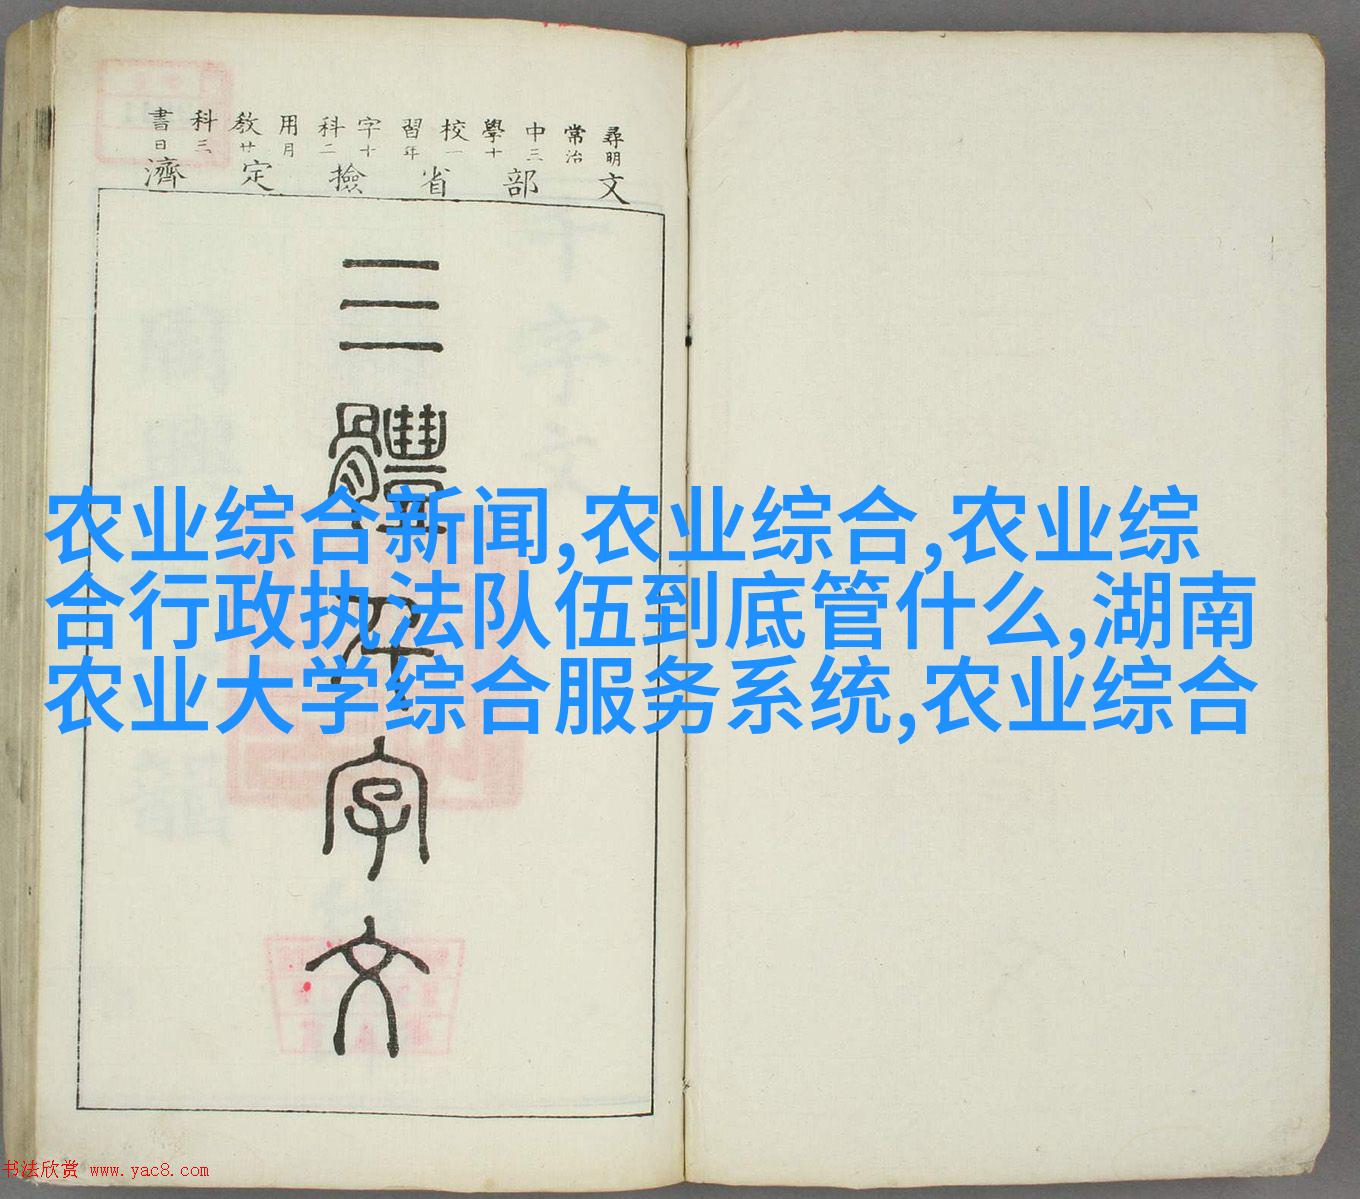 尋常中學校習字科用敎科書
明治三十一年十二月廿三日
文部省撿定濟
三體千字文
农业综合新闻,农业综合,农业综
合行政执法队伍到底管什么,湖南
农业大学综合服务系统,农业综合
书法欣赏 www.yac8.com